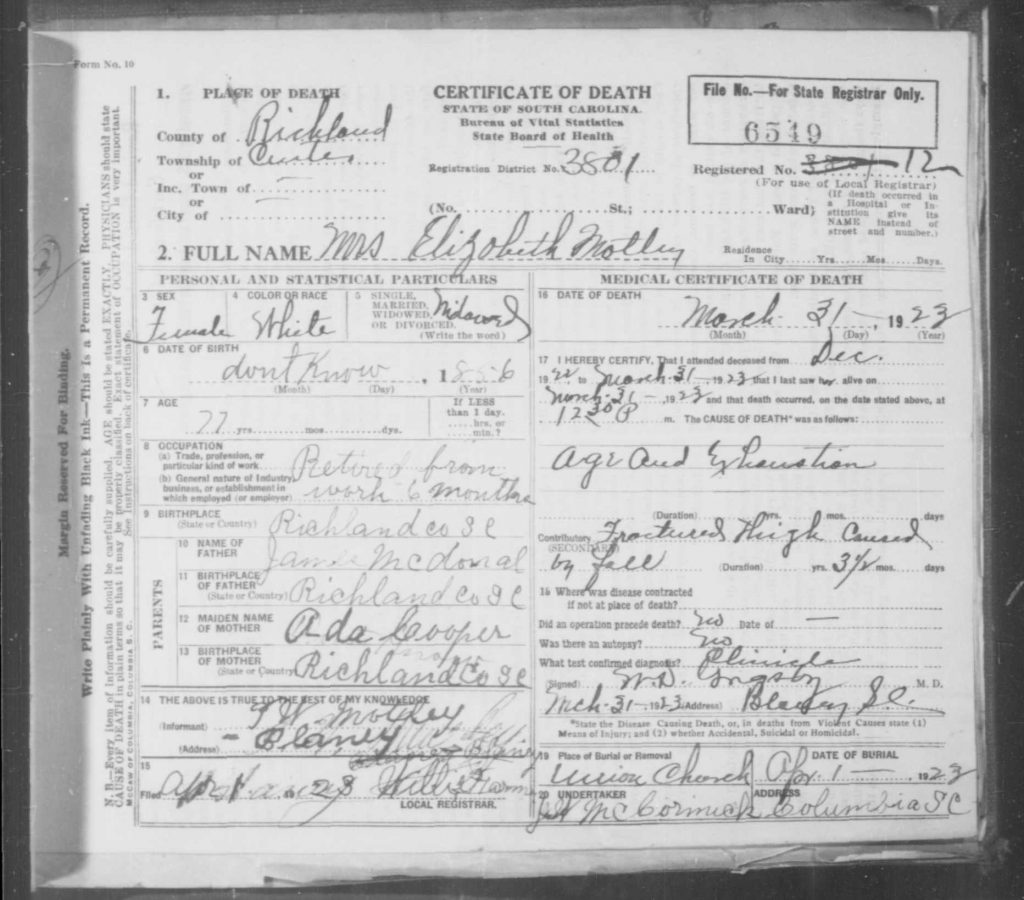 Form No. 10
1. PLACE OF DEATH
County of Richland
Township of
or
Inc. Town of —
or
City of —
CERTIFICATE OF DEATH
STATE OF SOUTH CAROLINA.
Bureau of Vital Statistics
State Board of Health
Registration District No. 3801
File No.—For State Registrar Only.
6549
Registered No. 3801 12
(For use of Local Registrar)
(No. St.; Ward)
(If death occurred in a Hospital or Institution give its NAME instead of street and number.)
2. FULL NAME Mrs Elizabeth Motley
Residence
In City Yrs. Mos. Days.
PERSONAL AND STATISTICAL PARTICULARS
3 SEX
Female
4 COLOR OR RACE
White
5 SINGLE, MARRIED, WIDOWED, OR DIVORCED. Widowed
(Write the word)
6 DATE OF BIRTH
dont Know , 1856
(Month) (Day) (Year)
7 AGE
77 yrs. mos. dys.
If LESS than 1 day.
hrs. or
min.?
8 OCCUPATION
(a) Trade, profession, or particular kind of work Retired from
(b) General nature of Industry, business, or establishment in which employed (or employer) work 6 months
9 BIRTHPLACE
(State or Country) Richland co S C
PARENTS
10 NAME OF FATHER James McDonal
11 BIRTHPLACE OF FATHER
(State or Country) Richland Co S C
12 MAIDEN NAME OF MOTHER Ada Cooper
13 BIRTHPLACE OF MOTHER
(State or Country) Richland Co S C
14 THE ABOVE IS TRUE TO THE BEST OF MY KNOWLEDGE
(Informant) T W Motley
(Address) Blaney
15
Filed 1923 Willis
LOCAL REGISTRAR.
MEDICAL CERTIFICATE OF DEATH
16 DATE OF DEATH
March 31 — , 1923
(Month) (Day) (Year)
17 I HEREBY CERTIFY, That I attended deceased from Dec.
1922 to March-31-, 1923 that I last saw her alive on
March-31-, 1923 and that death occurred, on the date stated above, at
1230 P m. The CAUSE OF DEATH* was as follows:
Age and Exhaustion
(Duration) yrs. mos. days
Contributory Fractured Thigh Caused
(SECONDARY)
by fall (Duration) yrs. 3 1/2 mos. days
18 Where was disease contracted
if not at place of death?
Did an operation precede death? no Date of —
Was there an autopsy? no
What test confirmed diagnosis?
(Signed) W.D. Grigsby M. D.
Mch-31-1923 (Address) Blaney S.C.
*State the Disease Causing Death, or, in deaths from Violent Causes state (1) Means of Injury; and (2) whether Accidental, Suicidal or Homicidal.
19 Place of Burial or Removal
Union Church
DATE OF BURIAL
Apr 1 — 1923
20 UNDERTAKER
McCormick
ADDRESS
Columbia S C
Margin Reserved For Binding.
Write Plainly With Unfading Black Ink—This Is a Permanent Record.
N. B.—Every item of Information should be carefully supplied. AGE should be stated EXACTLY. PHYSICIANS should state
CAUSE OF DEATH in plain terms so that it may be properly classified. Exact statement of OCCUPATION is very important.
See Instructions on back of certificate.
McCAW OF COLUMBIA, COLUMBIA S. C.